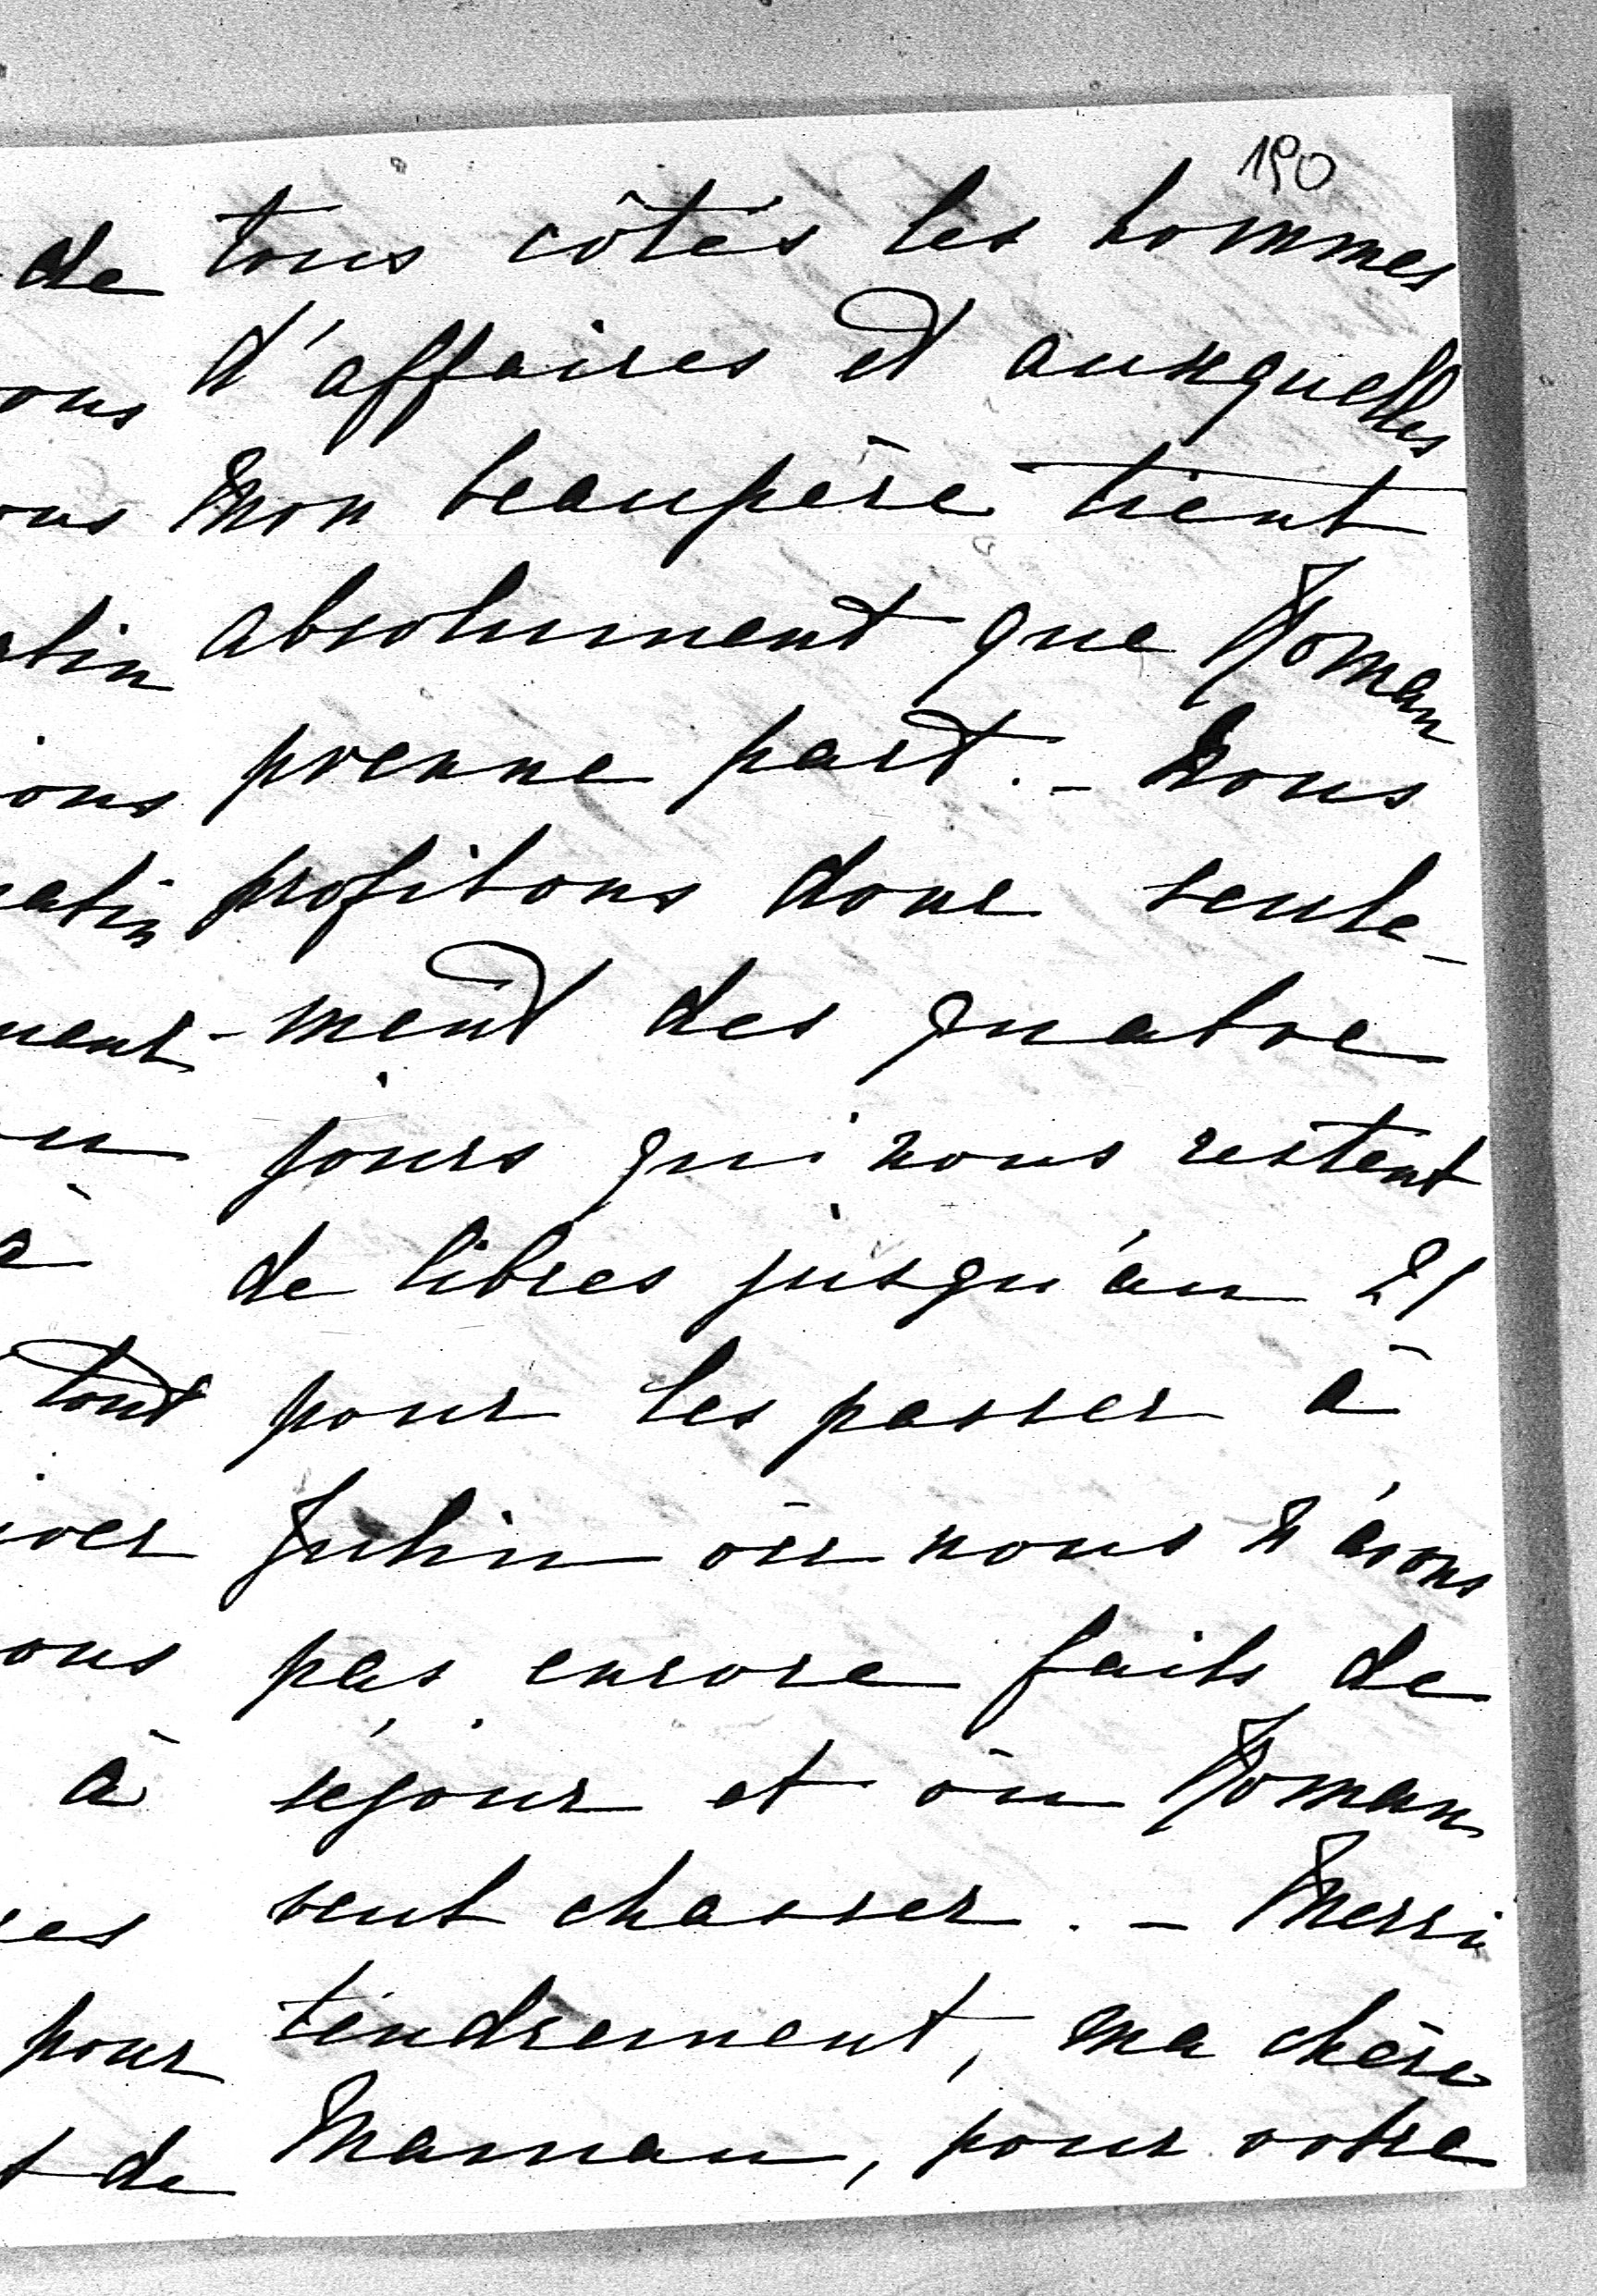 190
tous côtés les hommes
d'affaires et auxquelles
mon beaupère tient
absolument que Roman
prenne part. - Nous
profitons donc seule-
-ment des quatre
jours qui nous restent
de libres jusqu'au 21
pour les passer à
Julin où nous n'avons
pas encore faits de
séjour et où Roman
veut chasser. - Merci
tendrement, ma chère
Maman, pour votre
de
ous
tout
à
pour
de